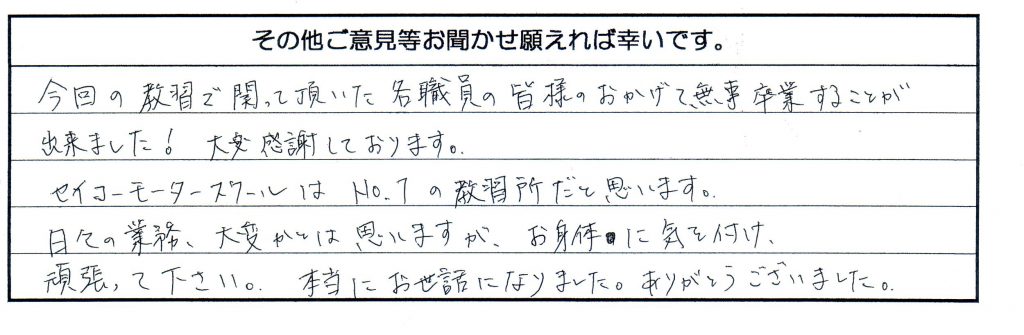 その他ご意見等お聞かせ願えれば幸いです。
今回の教習で関って頂いた各職員の皆様のおかげで無事卒業することが
出来ました！ 大変感謝しております。
セイコーモータースクールは No.1 の教習所だと思います。
日々の業務、大変かとは思いますが、お身体に気を付け、
頑張って下さい。 本当にお世話になりました。ありがとうございました。